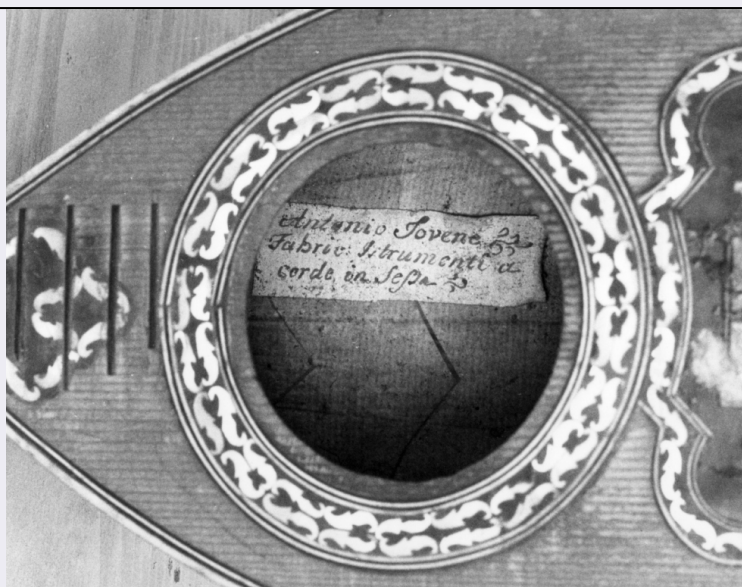 Antonio Jovene
Fabric: Istrumenti a
corde in Seſsa